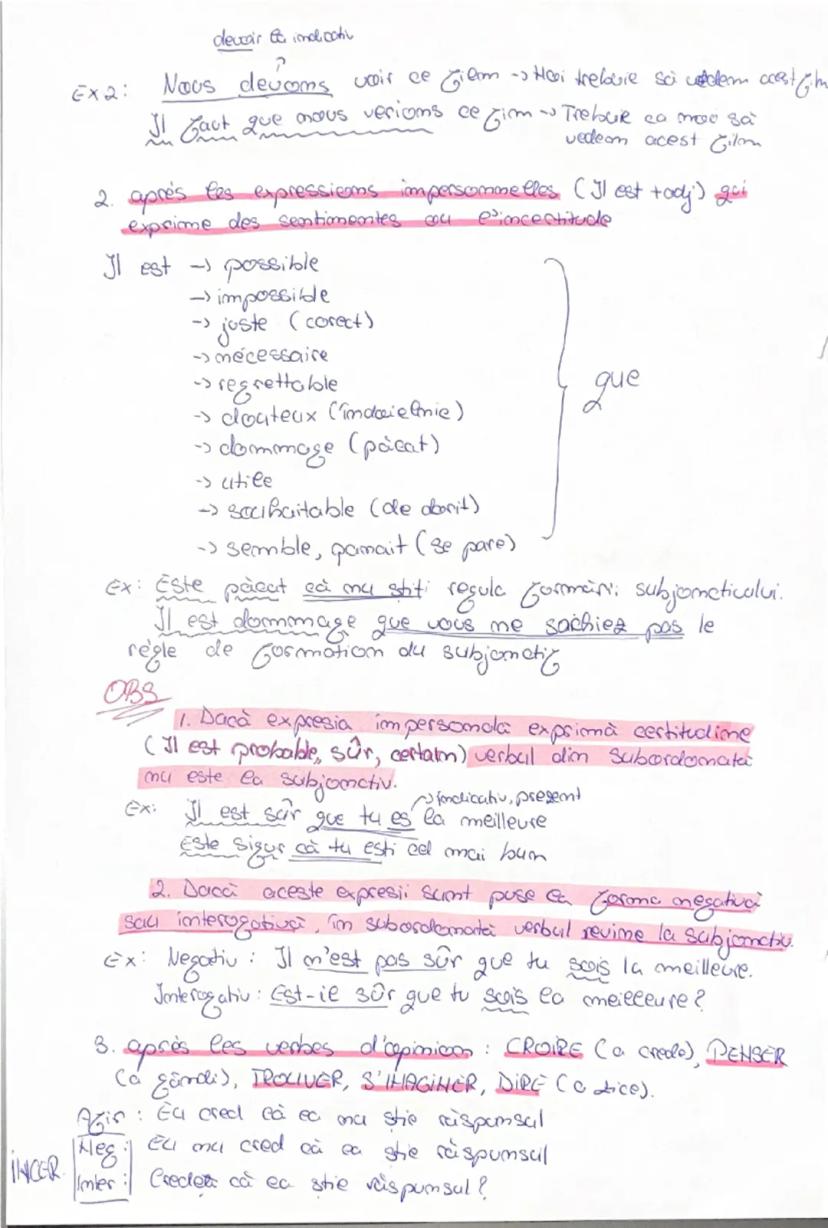 devoir la indicativ
Ex 2: Nous devons voir ce film → Noi trebuie să vedem acest film
Il faut que nous verions ce firm → Trebuie ca noi să
vedem acest film
2. après les expressions impersonnelles (Il est + adj) qui
exprime des sentimentes ou l'incertitude
Il est → possible
→ impossible
→ juste (corect)
→ nécessaire
→ regrettable
→ douteux (îndoielnic)
→ dommage (păcat)
→ utile
→ souhaitable (de dorit)
→ semble, (se pare)
que
Ex: Este păcat că nu știți regula formării subjonctivului.
Il est dommage que vous ne sachiez pas le
règle de formation du subjonctif
OBS
1. Dacă expresia impersonală exprimă certitudine
(Il est probable, sûr, certain) verbul din subordonată
nu este la subjonctiv.
→ indicativ, prezent
Ex: Il est sûr que tu es la meilleure
Este sigur că tu ești cel mai bun
2. Dacă aceste expresii sunt puse la forma negativă
sau interogativă, în subordonată verbul revine la subjonctiv.
Ex: Negativ: Il n'est pas sûr que tu sois la meilleure.
Interogativ: Est-il sûr que tu sois la meilleure?
3. après les verbes d'opinion: CROIRE (a crede), PENSER
(a gândi), TROUVER, S'IMAGINER, DIRE (a zice).
Afir: Eu cred că ea nu știe răspunsul
Neg: Eu nu cred că ea știe răspunsul
INCER. Inter: Credeți că ea știe răspunsul?